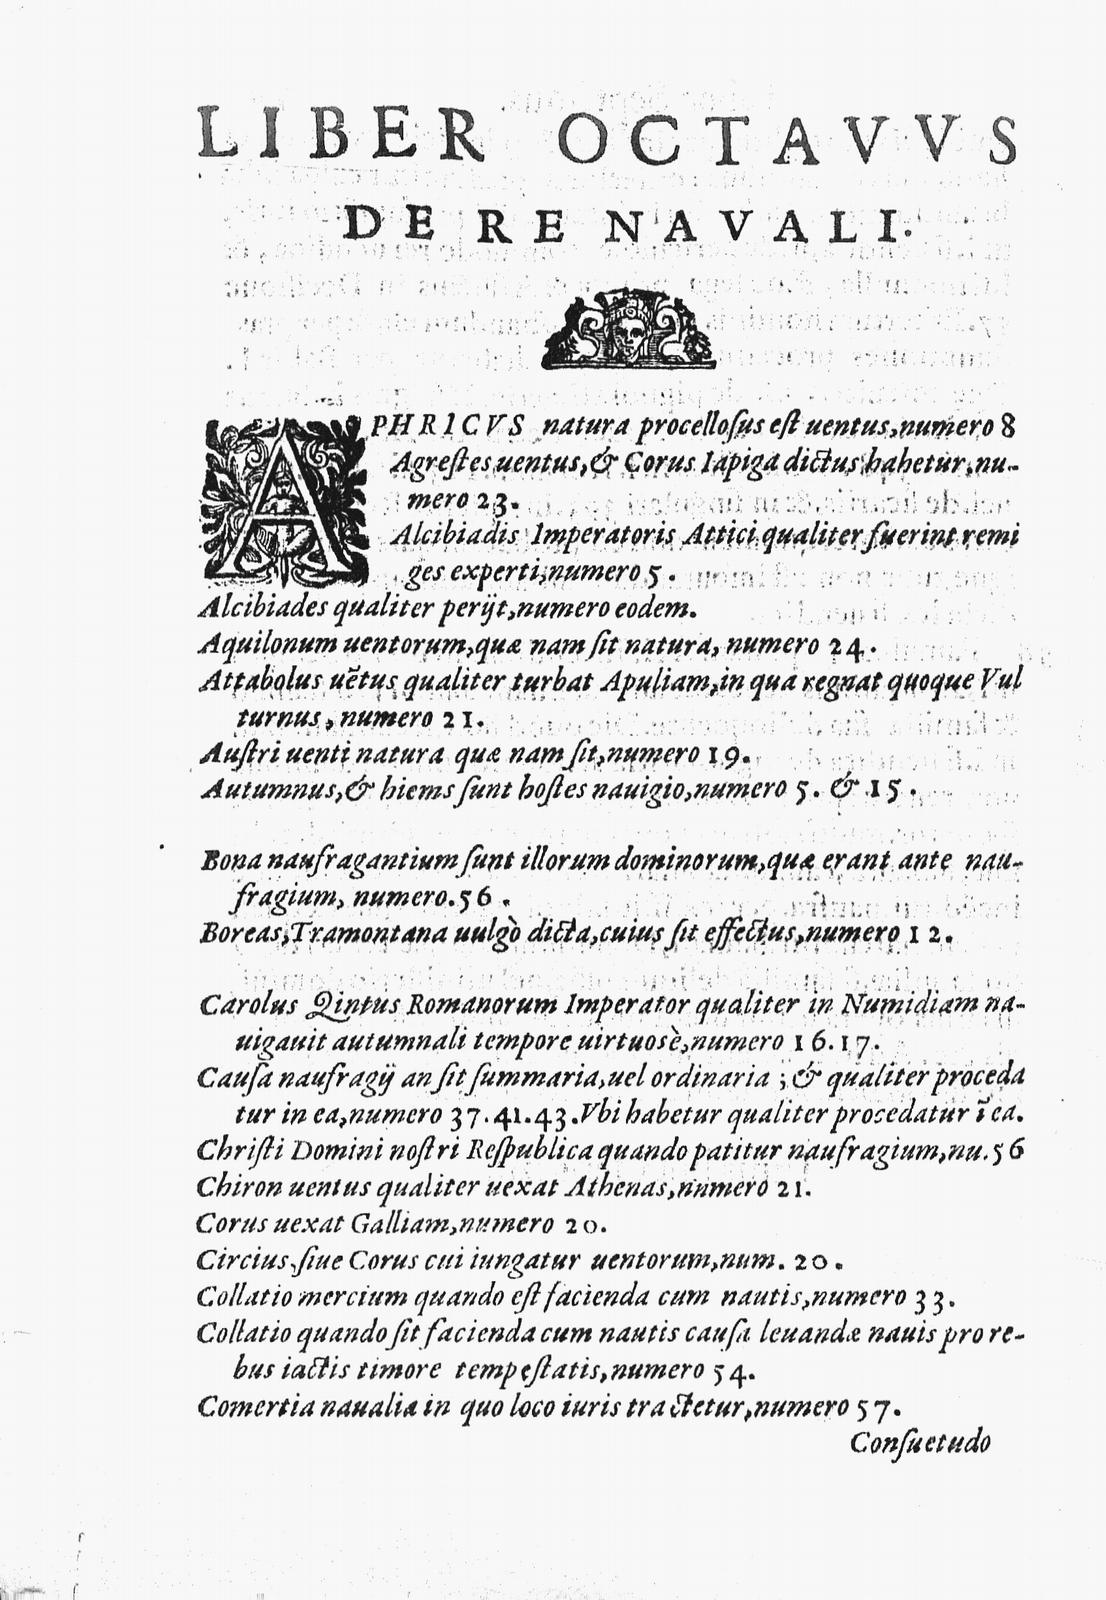 LIBER OCTAVVS
DE RE NAVALI.
APHRICVS natura procelloſus eſt uentus, numero 8
Agreſtes uentus, & Corus Iapiga dictus habetur, nu-
mero 23.
Alcibiadis Imperatoris Attici qualiter fuerint remi
ges experti, numero 5.
Alcibiades qualiter perijt, numero eodem.
Aquilonum uentorum, quæ nam ſit natura, numero 24.
Attabolus uẽtus qualiter turbat Apuliam, in qua regnat quoque Vul
turnus, numero 21.
Auſtri uenti natura quæ nam ſit, numero 19.
Autumnus, & hiems ſunt hoſtes nauigio, numero 5. & 15.
Bona naufragantium ſunt illorum dominorum, quæ erant ante nau-
fragium, numero. 56.
Boreas, Tramontana uulgò dicta, cuius ſit effectus, numero 12.
Carolus Qintus Romanorum Imperator qualiter in Numidiam na-
uigauit autumnali tempore uirtuosè, numero 16. 17.
Cauſa naufragij an ſit ſummaria, uel ordinaria ; & qualiter proceda
tur in ea, numero 37. 41. 43. Vbi habetur qualiter procedatur ĩ ea.
Chriſti Domini noſtri Reſpublica quando patitur naufragium, nu. 56
Chiron uentus qualiter uexat Athenas, numero 21.
Corus uexat Galliam, numero 20.
Circius, ſiue Corus cui iungatur uentorum, num. 20.
Collatio mercium quando eſt facienda cum nautis, numero 33.
Collatio quando ſit facienda cum nautis cauſa leuandæ nauis pro re-
bus iactis timore tempeſtatis, numero 54.
Comertia naualia in quo loco iuris tractetur, numero 57.
Conſuetudo